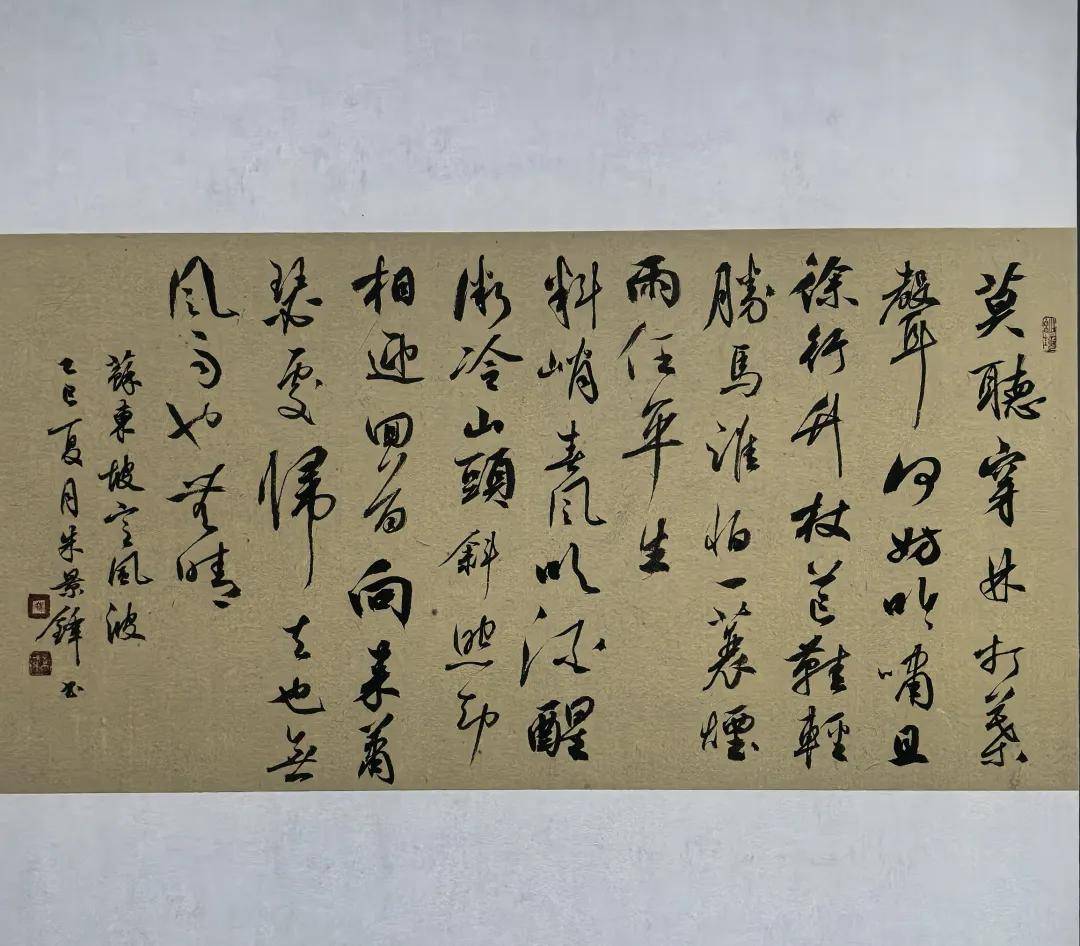 莫聽穿林打葉
聲何妨吟嘯且
徐行竹杖芒鞋輕
勝馬誰怕一蓑煙
雨任平生
料峭春風吹酒醒
微冷山頭斜照却
相迎回首向来蕭
瑟處歸去也無
風雨也無晴
蘇東坡定風波
乙巳夏月朱景鋒书